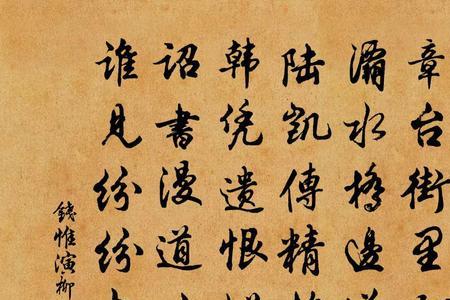 章台街里
灞水橋邊
陆凯傳精
韩凭遺恨
诏書漫道
谁見纷纷
錢惟演柳